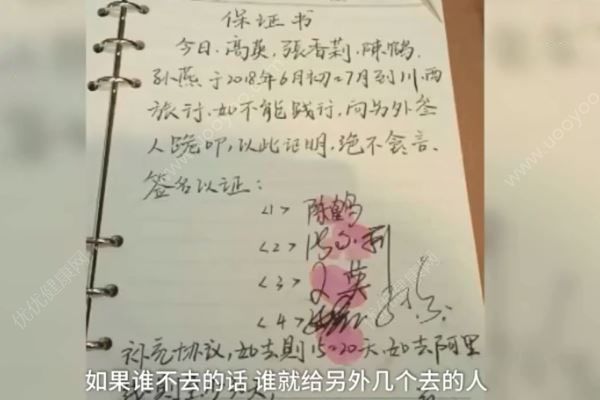 保证书
今日、高英，張香莉，陳鶴，
孙燕于2018年6月初-7月到川西
旅行，如不能践行，向另外叁
人跪叩，以此证明，绝不食言、
签名以证：
<1> 陈鹤
<2>
<3> 英
<4>
补充协议，如去則15-20天，如去阿里
如果谁不去的话 谁就给另外几个去的人
优优健康网
www.uoyoo